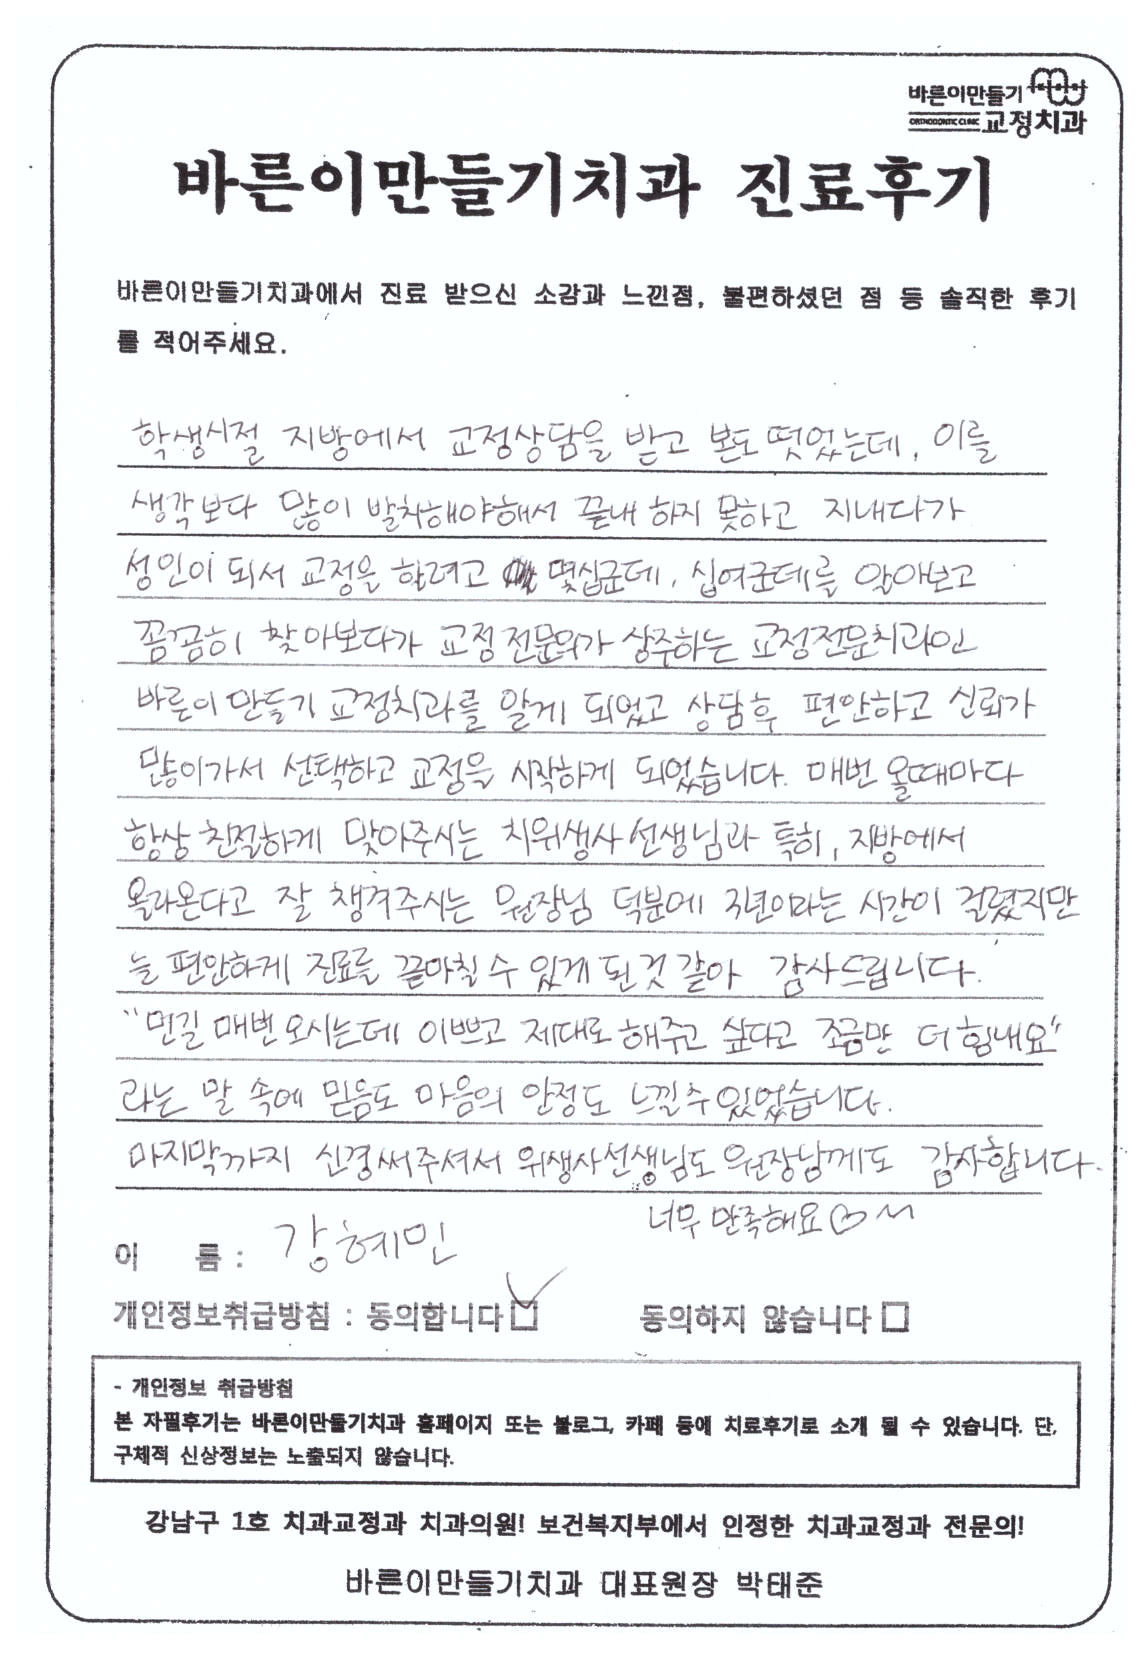 바른이만들기
ORTHODONTIC CLINIC 교정치과
바른이만들기치과 진료후기
바른이만들기치과에서 진료 받으신 소감과 느낀점, 불편하셨던 점 등 솔직한 후기
를 적어주세요.
학생시절 지방에서 교정상담을 받고 본도 떳었는데, 이를
생각보다 많이 발치해야해서 끝내 하지 못하고 지내다가
성인이 되서 교정을 하려고 몇십군데, 십여군데를 알아보고
꼼꼼히 찾아보다가 교정전문의가 상주하는 교정전문치과인
바른이만들기 교정치과를 알게 되었고 상담후 편안하고 신뢰가
많이가서 선택하고 교정을 시작하게 되었습니다. 매번 올때마다
항상 친절하게 맞아주시는 치위생사 선생님과 특히, 지방에서
올라온다고 잘 챙겨주시는 원장님 덕분에 3년이라는 시간이 걸렸지만
늘 편안하게 진료를 끝마칠 수 있게 된것 같아 감사드립니다.
"먼길 매번 오시는데 이쁘고 제대로 해주고 싶다고 조금만 더 힘내요"
라는 말 속에 믿음도 마음의 안정도 느낄수 있었습니다.
마지막까지 신경써주셔서 위생사선생님도 원장님께도 감사합니다.
너무 만족해요♡
이 름 : 강혜민
개인정보취급방침 : 동의합니다☑ 동의하지 않습니다☐
- 개인정보 취급방침
본 자필후기는 바른이만들기치과 홈페이지 또는 블로그, 카페 등에 치료후기로 소개 될 수 있습니다. 단,
구체적 신상정보는 노출되지 않습니다.
강남구 1호 치과교정과 치과의원! 보건복지부에서 인정한 치과교정과 전문의!
바른이만들기치과 대표원장 박태준